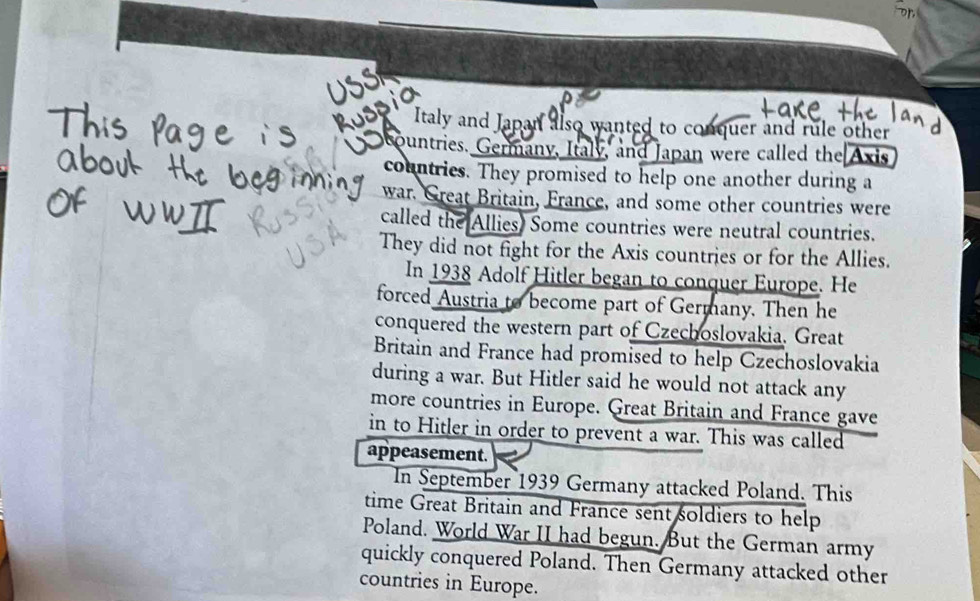 For
USSR
Russia
take the land
This Page is
about the beginning
OF WWII
Russia
USA
Italy and Japan also wanted to conquer and rule other
countries. Germany, Italy, and Japan were called the Axis
countries. They promised to help one another during a
war. Great Britain, France, and some other countries were
called the Allies. Some countries were neutral countries.
They did not fight for the Axis countries or for the Allies.
In 1938 Adolf Hitler began to conquer Europe. He
forced Austria to become part of Germany. Then he
conquered the western part of Czechoslovakia. Great
Britain and France had promised to help Czechoslovakia
during a war. But Hitler said he would not attack any
more countries in Europe. Great Britain and France gave
in to Hitler in order to prevent a war. This was called
appeasement.
In September 1939 Germany attacked Poland. This
time Great Britain and France sent soldiers to help
Poland. World War II had begun. But the German army
quickly conquered Poland. Then Germany attacked other
countries in Europe.